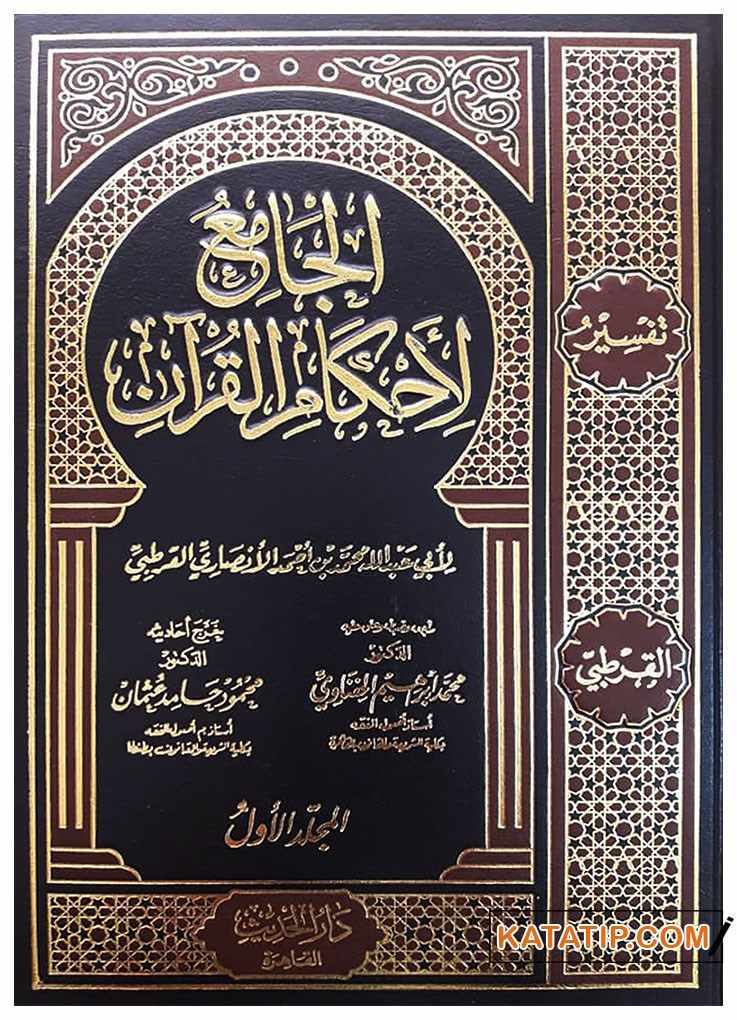 الجَامِعُ
لِأَحْكَامِ القُرْآنِ
تَفْسِيْرُ
القُرْطبِيّ
لِأَبِي عَبْدِ اللهِ مُحَمَّدِ بْنِ أَحْمَدَ الْأَنْصَارِيِّ القُرْطُبِيِّ
الدكتور
محمد إبراهيم الحفناوي
أستاذ أصول الفقه
بكلية الشريعة والقانون
خَرَّجَ أَحَادِيثَه
الدكتور
محمود حامد عثمان
أصول الفقه
بكلية الشريعة والقانون بطنطا
المجلد الأول
دَارُ الحَدِيث
القَاهِرَة
KATATIP.COM